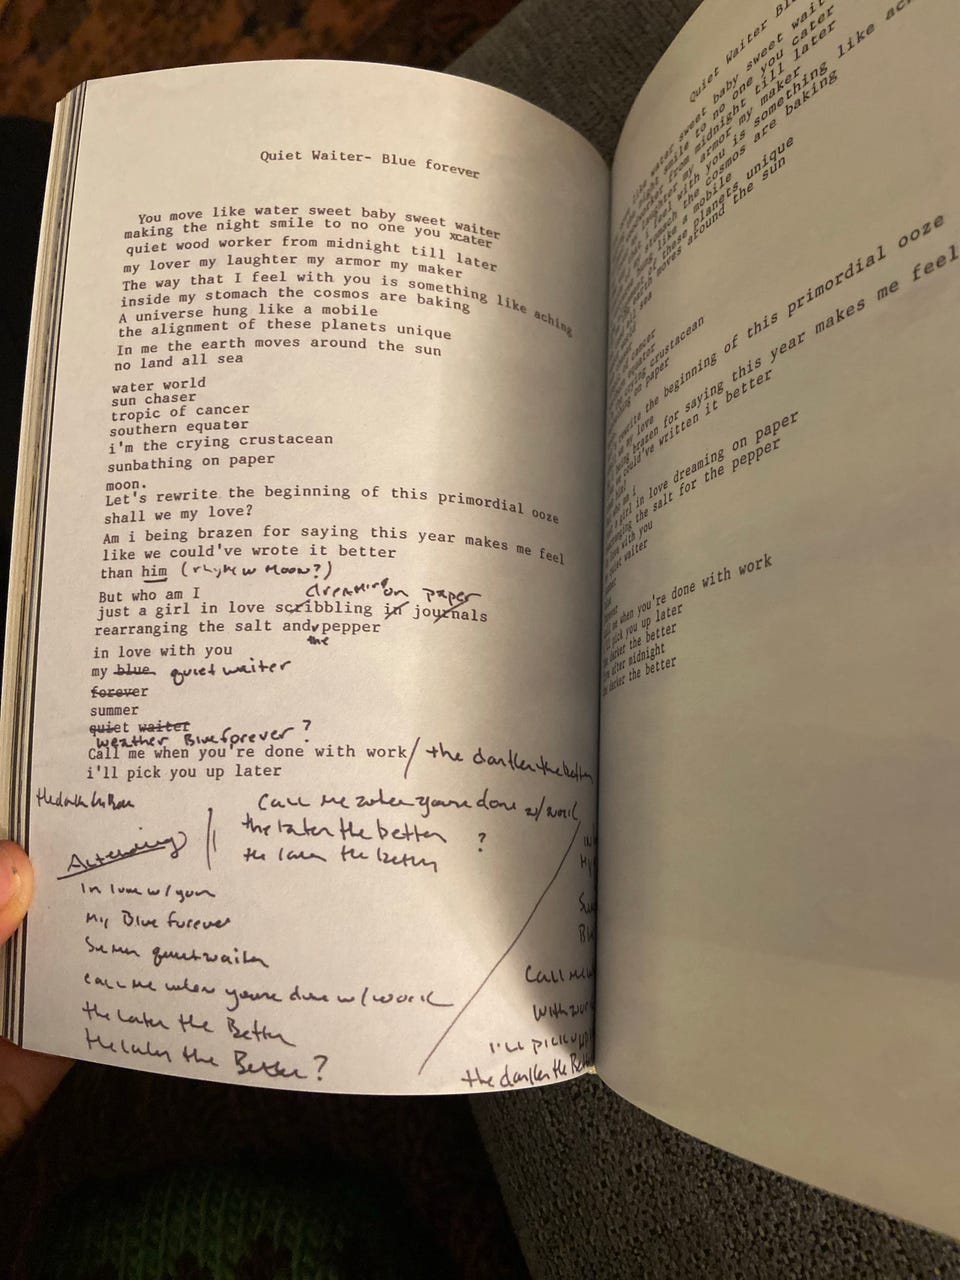 Quiet Waiter- Blue forever
You move like water sweet baby sweet waiter
making the night smile to no one you xcater
quiet wood worker from midnight till later
my lover my laughter my armor my maker
The way that I feel with you is something like aching
inside my stomach the cosmos are baking
A universe hung like a mobile
the alignment of these planets unique
In me the earth moves around the sun
no land all sea
water world
sun chaser
tropic of cancer
southern equator
i'm the crying crustacean
sunbathing on paper
moon.
Let's rewrite the beginning of this primordial ooze
shall we my love?
Am i being brazen for saying this year makes me feel
like we could've wrote it better
than him (rhyme w moon?)
But who am I
dreaming on paper
just a girl in love scribbling in journals
rearranging the salt and pepper
the
in love with you
my blue quiet waiter
forever
summer
quiet waiter
weather Blue forever?
Call me when you're done with work/ the darker the better
i'll pick you up later
Call me when youre done w/ work
the later the better ?
the later the better
In love w/ you
My Blue forever
quiet waiter
call me when youre done w/ work
the later the Better
the later the Better?
Call me
with work
I'll pick up
the darker the Bett
Quiet Waiter Bl
water sweet baby sweet wait
night smile to no one you cater
worker from midnight till later
laughter my armor my maker
I feel with you is something like ach
stomach the cosmos are baking
hung like a mobile
of these planets unique
earth moves around the sun
all sea
of cancer
equator
crying crustacean
on paper
rewrite the beginning of this primordial ooze
my love
being brazen for saying this year makes me feel
could've written it better
him
who am i
a girl in love dreaming on paper
rearranging the salt for the pepper
love with you
quiet waiter
forever
me when you're done with work
pick you up later
darker the better
after midnight
the darker the better